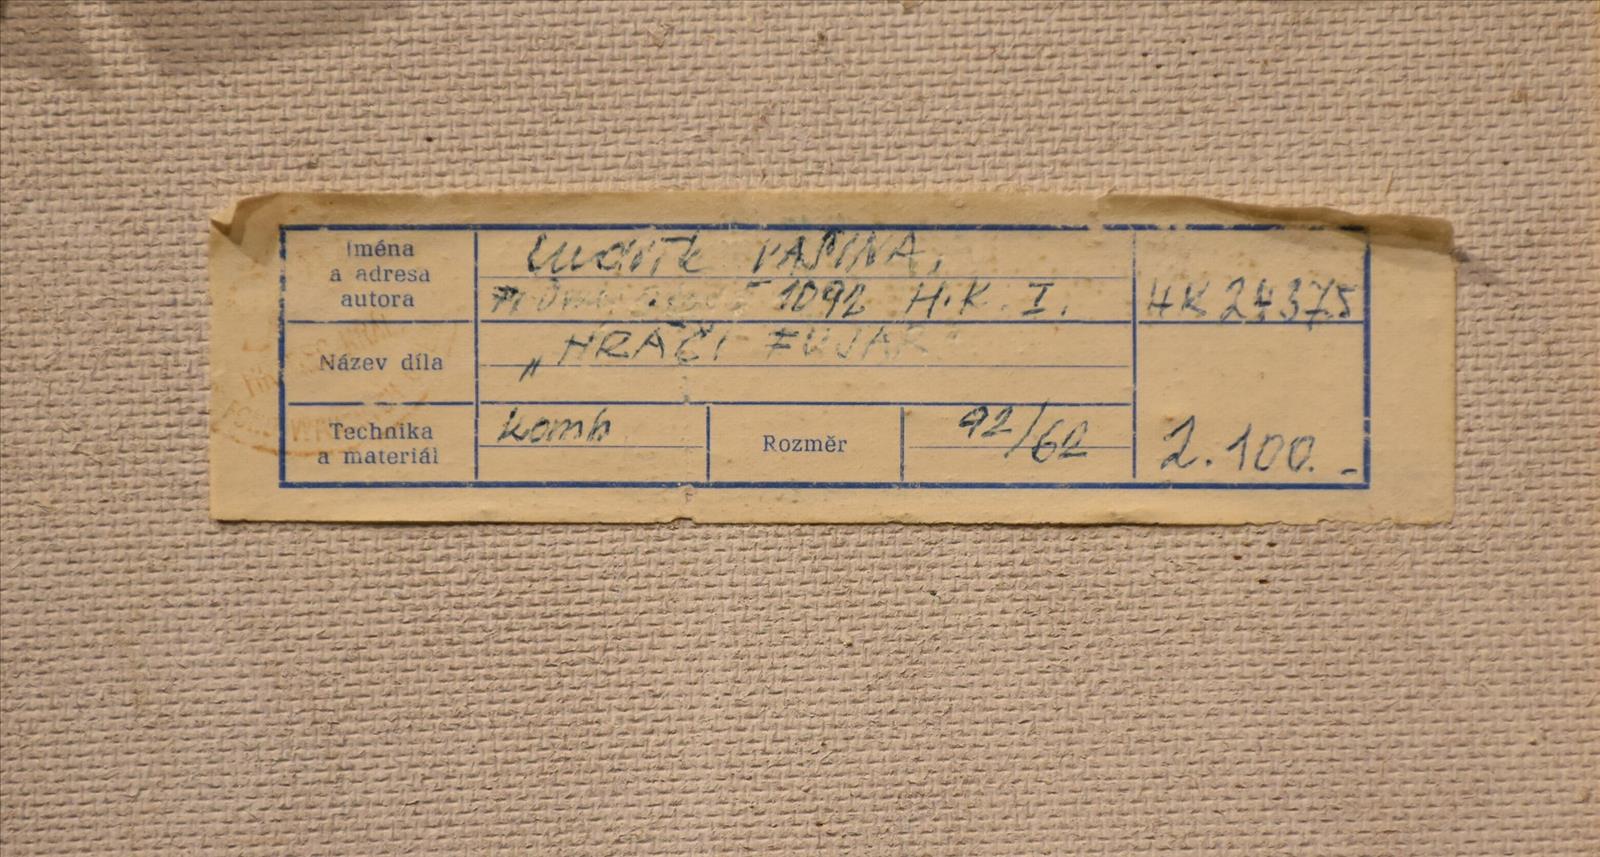 Jména
a adresa
autora
Luděk VAŠINA,
1092 H.K. I.
HK 24375
Název díla
„HRAČI FUJAR“
Technika
a materiál
komb
Rozměr
92/62
2.100.-